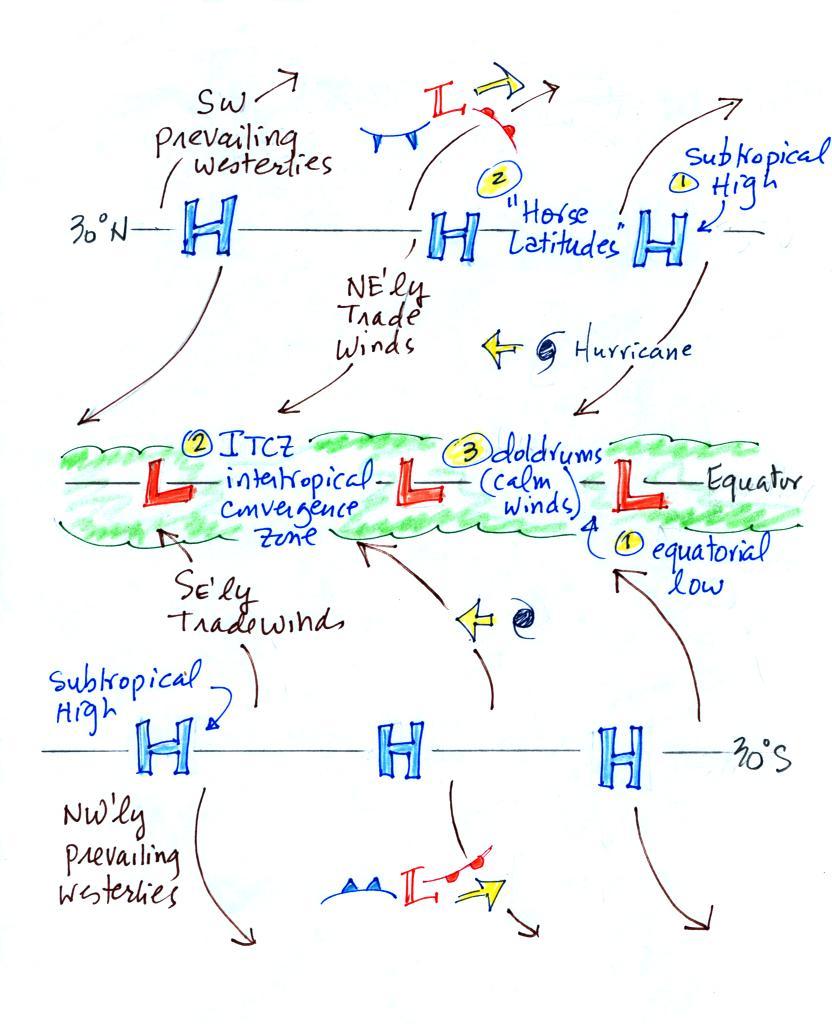 SW
prevailing
westerlies
L
2
Subtropical
1 High
30°N H H "Horse
Latitudes" H
NE'ly
Trade
Winds
Hurricane
2 ITCZ
intertropical
convergence
zone
3 doldrums
(calm
winds)
L L L Equator
1 equatorial
low
SE'ly
Trade winds
Subtropical
High
H H H 30°S
NW'ly
prevailing
westerlies
L